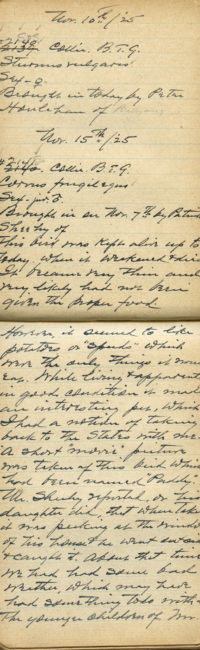 Nov. 10th/25
Collin. B.T.G.
Sturnus vulgaris
Sex - ♀.
Brought in today by Peter
Houlihan of
Nov. 15th/25
Collin. B.T.G.
Corvus frugilegus
Sex - juv. ♂.
Brought in on Nov. 7th by Patrick
of
This bird was kept alive up to
today, when it weakened & died
It became very thin and
very likely had not been
given the proper food
However it seemed to like
potatoes or "spuds" which
were the only things it would
eat. While living & apparently
in good condition it made
an interesting pet, which
I had a notion of taking
back to the States with me.
A short "movie" picture
was taken of this bird which
had been named "Paddy".
Mr. reported, or his
daughter did, that when taken
it was pecking at the window
of his house & he went outside
& caught it. About that time
we had had some bad
weather which may have
had something to do with it
the younger children of Mr.